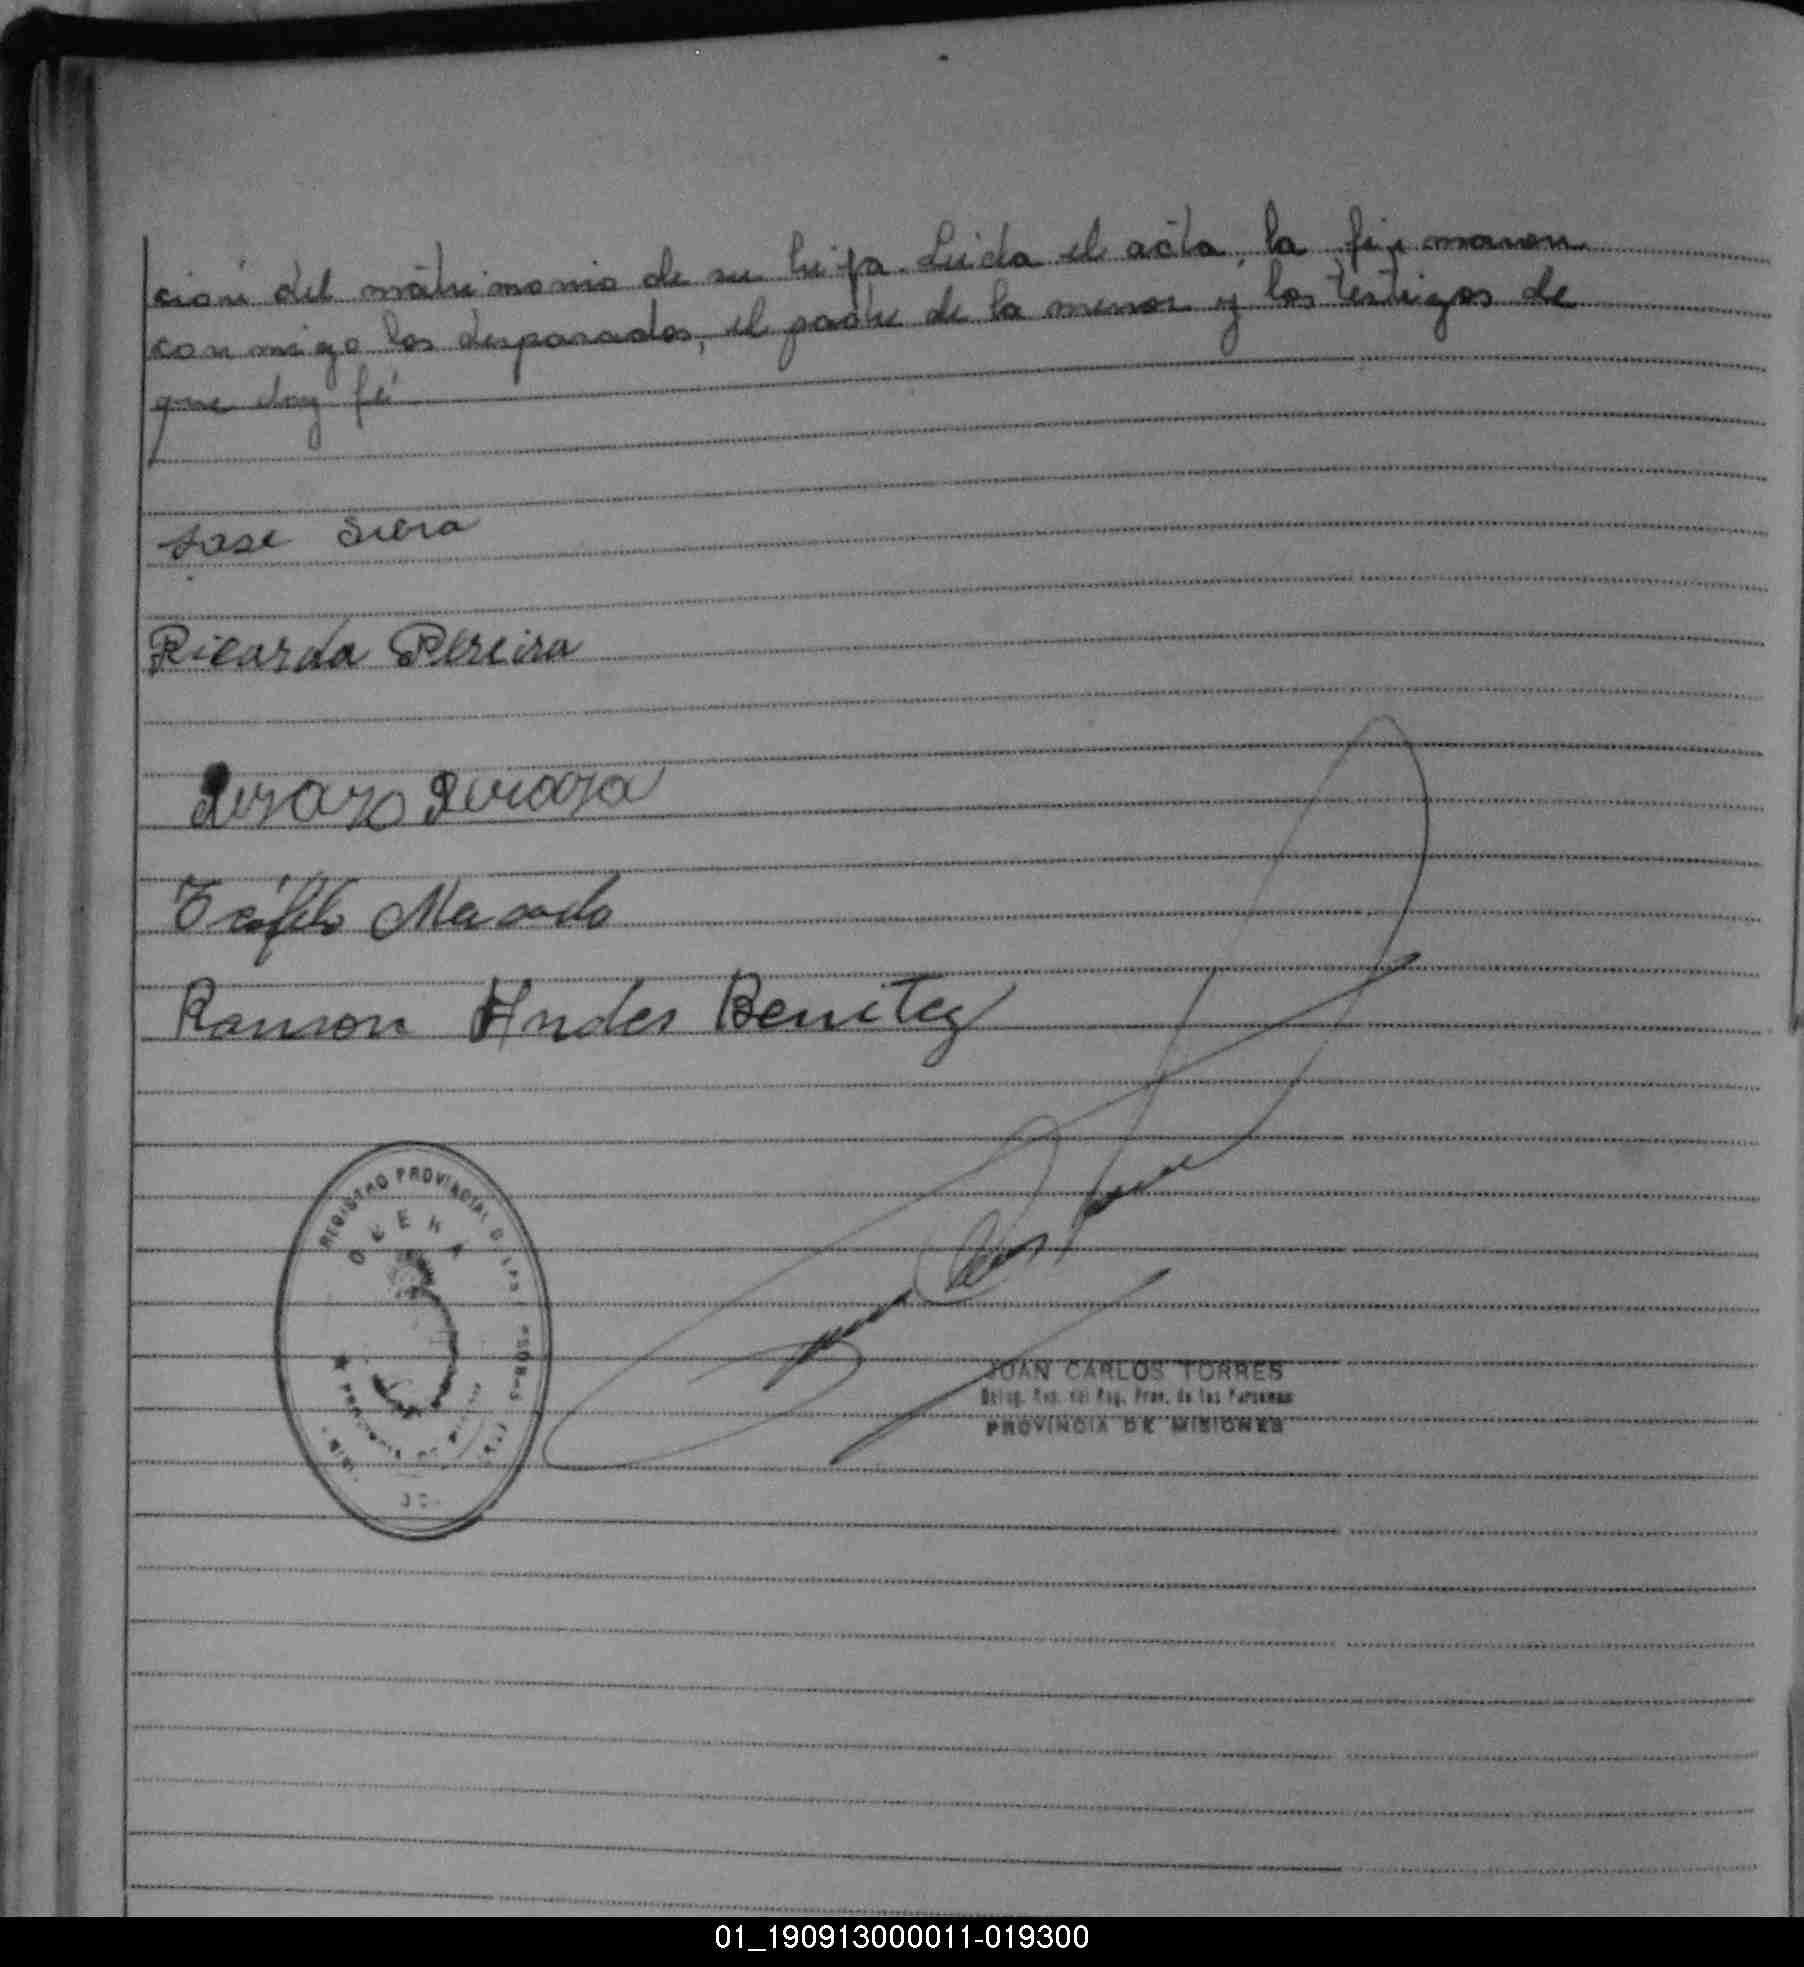 ción del matrimonio de su hija. Leida el acta, la firmaron
conmigo los desposados, el padre de la menor y los testigos de
que doy fé
Jose Siera
Ricarda Pereira
Teófilo Macedo
Ramon Andes Benitez
REGISTRO PROVINCIAL DE LAS PERSONAS
OBERA
PROVINCIA DE MISIONES
JUAN CARLOS TORRES
Deleg. Rep. del Reg. Prov. de las Personas
PROVINCIA DE MISIONES
01_190913000011-019300